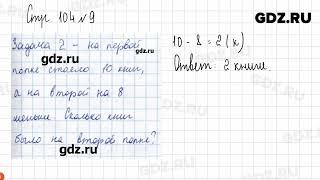 GDZ.RU
Стр 104 №9
gdz.ru
Задача 2 - на первой
полке стояло 10 книг,
gdz.ru
а на второй на 8
меньше. Сколько книг
gdz.ru
было на второй полке?
gdz.ru
10 - 8 = 2 (к)
Ответ: 2 книги.
gdz.ru
gdz.ru